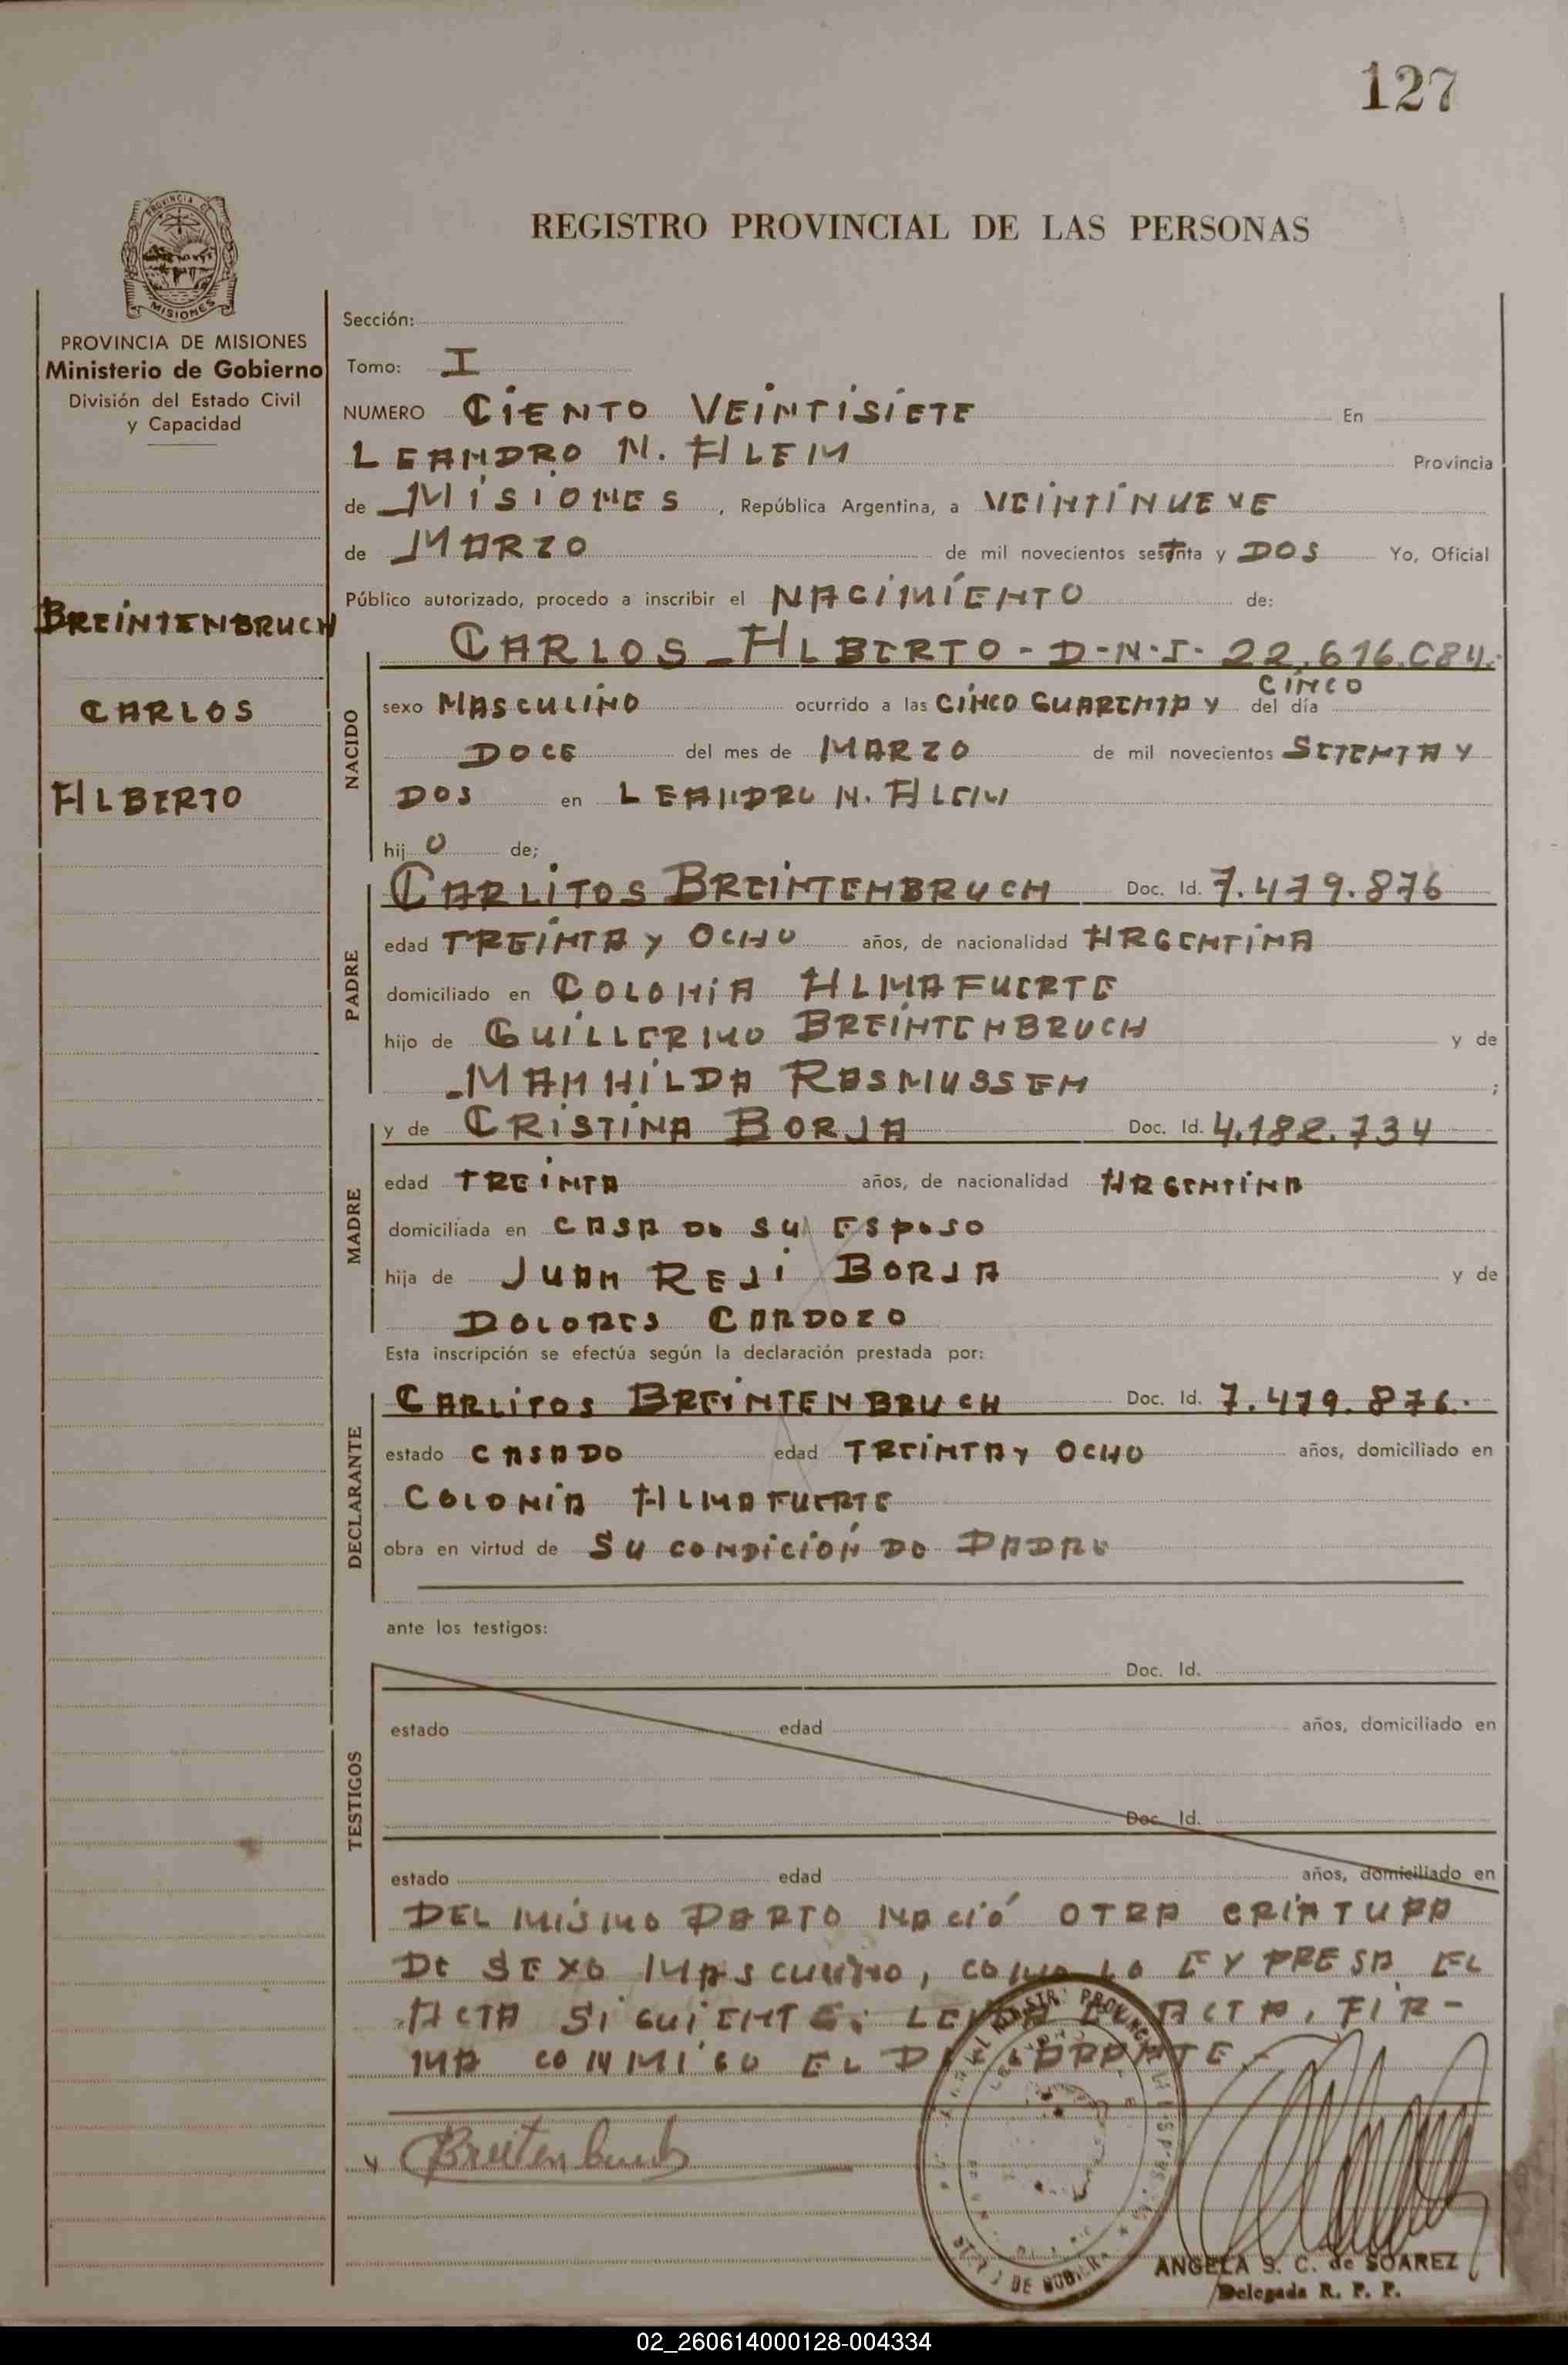 127
REGISTRO PROVINCIAL DE LAS PERSONAS
MISIONES
PROVINCIA DE MISIONES
Ministerio de Gobierno
División del Estado Civil
y Capacidad
BREINTENBRUCH
CARLOS
ALBERTO
Sección:
Tomo: I
NUMERO CIENTO VEINTISIETE En
LEANDRO N. ALEM Provincia
de MISIONES, República Argentina, a VEINTINUEVE
de MARZO de mil novecientos setenta y DOS Yo, Oficial
Público autorizado, procedo a inscribir el NACIMIENTO de:
NACIDO
CARLOS ALBERTO - D-N-I- 22.616.084.-
CINCO
sexo MASCULINO ocurrido a las CINCO CUARENTA Y del día
DOCE del mes de MARZO de mil novecientos SETENTA Y
DOS en LEANDRO N. ALEM
hij O de;
PADRE
CARLITOS BREINTENBRUCH Doc. Id. 7.479.876
edad TREINTA Y OCHO años, de nacionalidad ARGENTINA
domiciliado en COLONIA ALMAFUERTE
hijo de GUILLERMO BREINTENBRUCH y de
MANHILDA RASMUSSEN ;
MADRE
y de CRISTINA BORJA Doc. Id. 4.182.734
edad TREINTA años, de nacionalidad ARGENTINA
domiciliada en CASA DE SU ESPOSO
hija de JUAN REJI BORJA y de
DOLORES CARDOZO
Esta inscripción se efectúa según la declaración prestada por:
DECLARANTE
CARLITOS BREINTENBRUCH Doc. Id. 7.479.876.
estado CASADO edad TREINTA Y OCHO años, domiciliado en
COLONIA ALMAFUERTE
obra en virtud de SU CONDICIÓN DE PADRE
ante los testigos:
TESTIGOS
Doc. Id.
estado edad años, domiciliado en
Doc. Id.
estado edad años, domiciliado en
DEL MISMO PARTO NACIÓ OTRA CRIATURA
DE SEXO MASCULINO, COMO LO EXPRESA EL
ACTA SIGUIENTE: LEIDA EL ACTA, FIR-
MA CONMIGO EL DECLARANTE.-
Breitenbruch
ANGELA S. C. de SOAREZ
Delegada R. P. P.
02_260614000128-004334